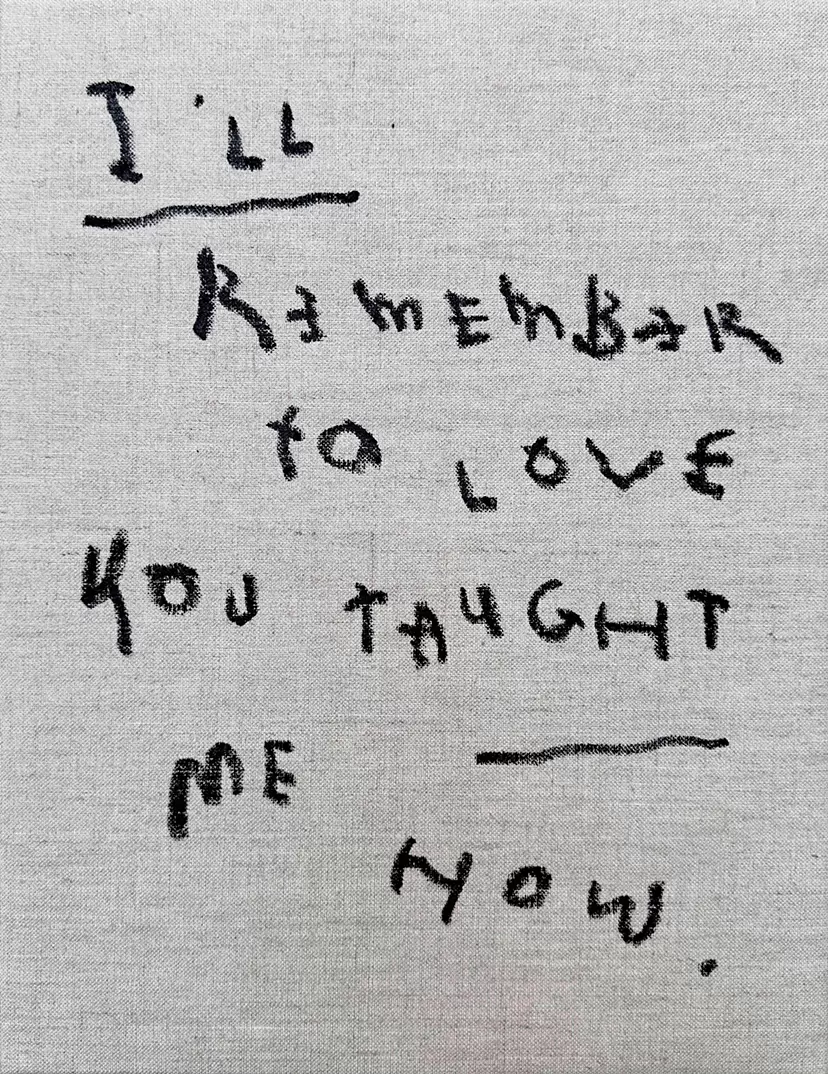 I'LL
REMEMBER
to LOVE
YOU TAUGHT
ME
HOW.